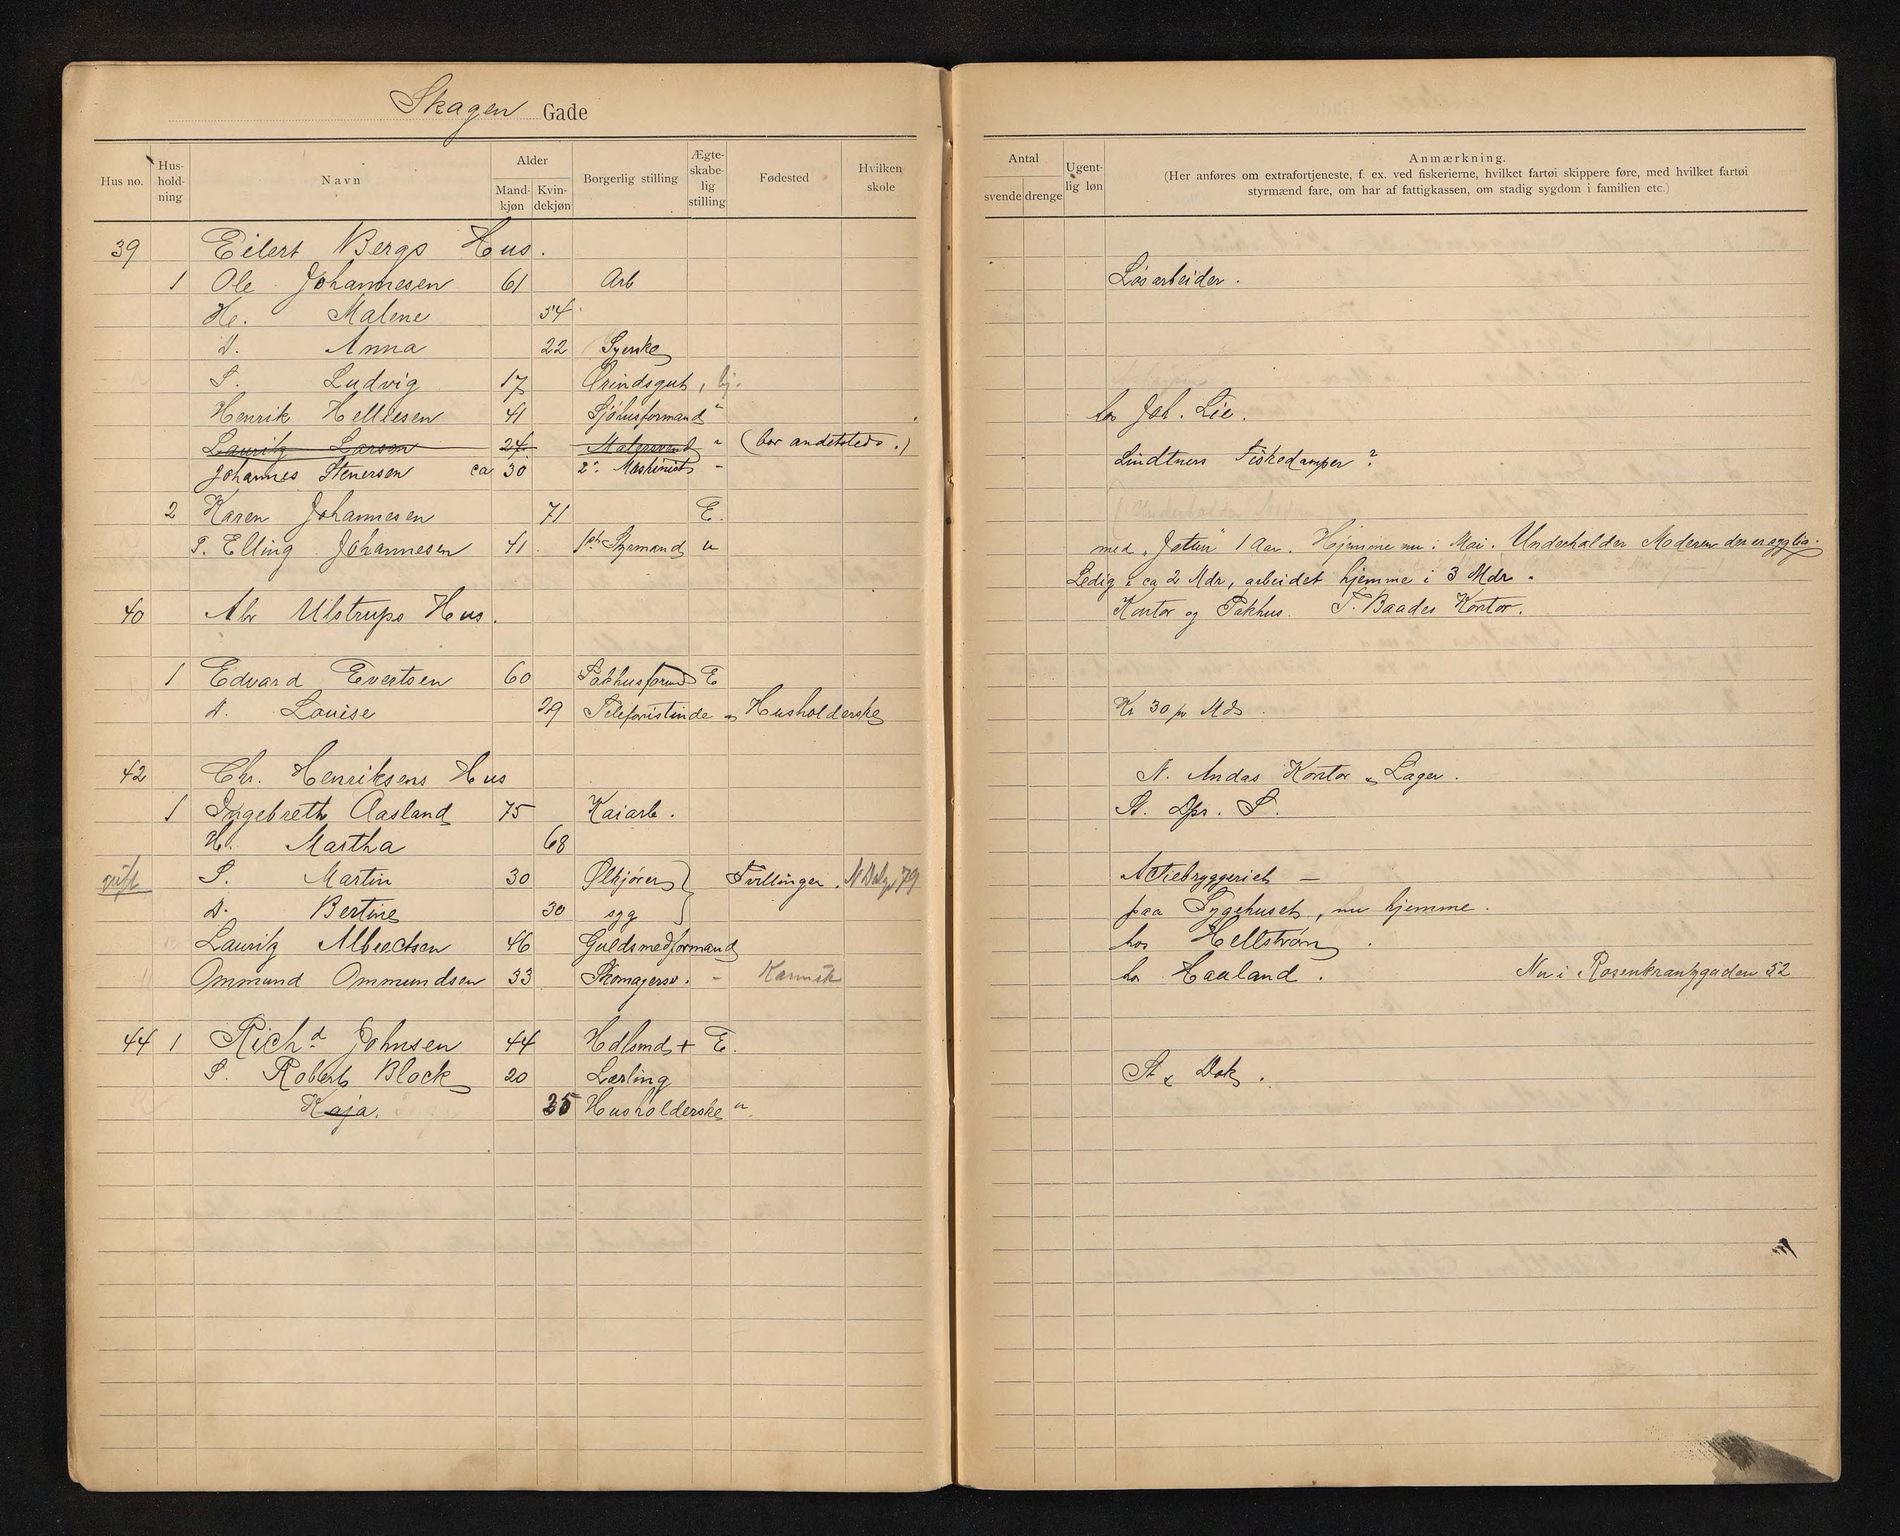 Skagen Gade
Hus no.
Hus-
hold-
ning
Navn
Alder
Mand-
kjøn
Kvin-
dekjøn
Borgerlig stilling
Ægte-
skabe-
lig
stilling
Fødested
Hvilken
skole
Antal
svende drenge
Ugent-
lig løn
Anmærkning.
(Her anføres om extrafortjeneste, f. ex. ved fiskerierne, hvilket fartøi skippere føre, med hvilket fartøi
styrmænd fare, om har af fattigkassen, om stadig sygdom i familien etc.)
39 Eilert Bergs Hus.
1 Ole Johannesen 61 Arb Løsarbeider.
He. Malene 54
D. Anna 22 Syerske
S. Ludvig 17 Ørindsgut, hj.
Henrik Helliesen 41 Sjøhusformand " hos Joh. Lie.
Lauritz Larsen 24 Malersvend " (bor andetsteds.)
Johannes Stenersen ca 30 2. Maskinist - Lindtners Fiskedamper?
2 Karen Johannesen 71 E.
S. Elling Johannesen 41 Styrmand u med "Jotun" 1 Aar. Hjemme nu i Mai. Underholder Moderen der er
Ledig i ca 2 Mdr, arbeidet hjemme i 3 Mdr.
40 Abr Ulstrups Hus. Kontor og Pakhus. T. Baades Kontor.
1 Edvard Evertsen 60 Pakhusformd E
D. Louise 29 Telefonistinde og Husholderske Kr 30 pr Md
42 Chr. Henriksens Hus N. Andas Kontor & Lager.
1 Ingebreth Aasland 75 Kaiarb. St. Dps. S.
H. Martha 68
S. Martin 30 Ølkjører Tvillinger. 79 Actiebryggeriet -
D. Bertine 30 syg paa Sygehuset, nu hjemme.
Lauritz Albrectsen 46 Guldsmedformand hos Hellstrøm.
Ommund Ommundsen 33 Skomagersv. - Kannik hos Haaland. Nu i Rosenkrantzgaden 52
44 1 Rich.d Johnsen 44 Hdlsmd + E.
S. Robert Block 20 Lærling St & Dok.
Kaja. 35 Husholderske u.